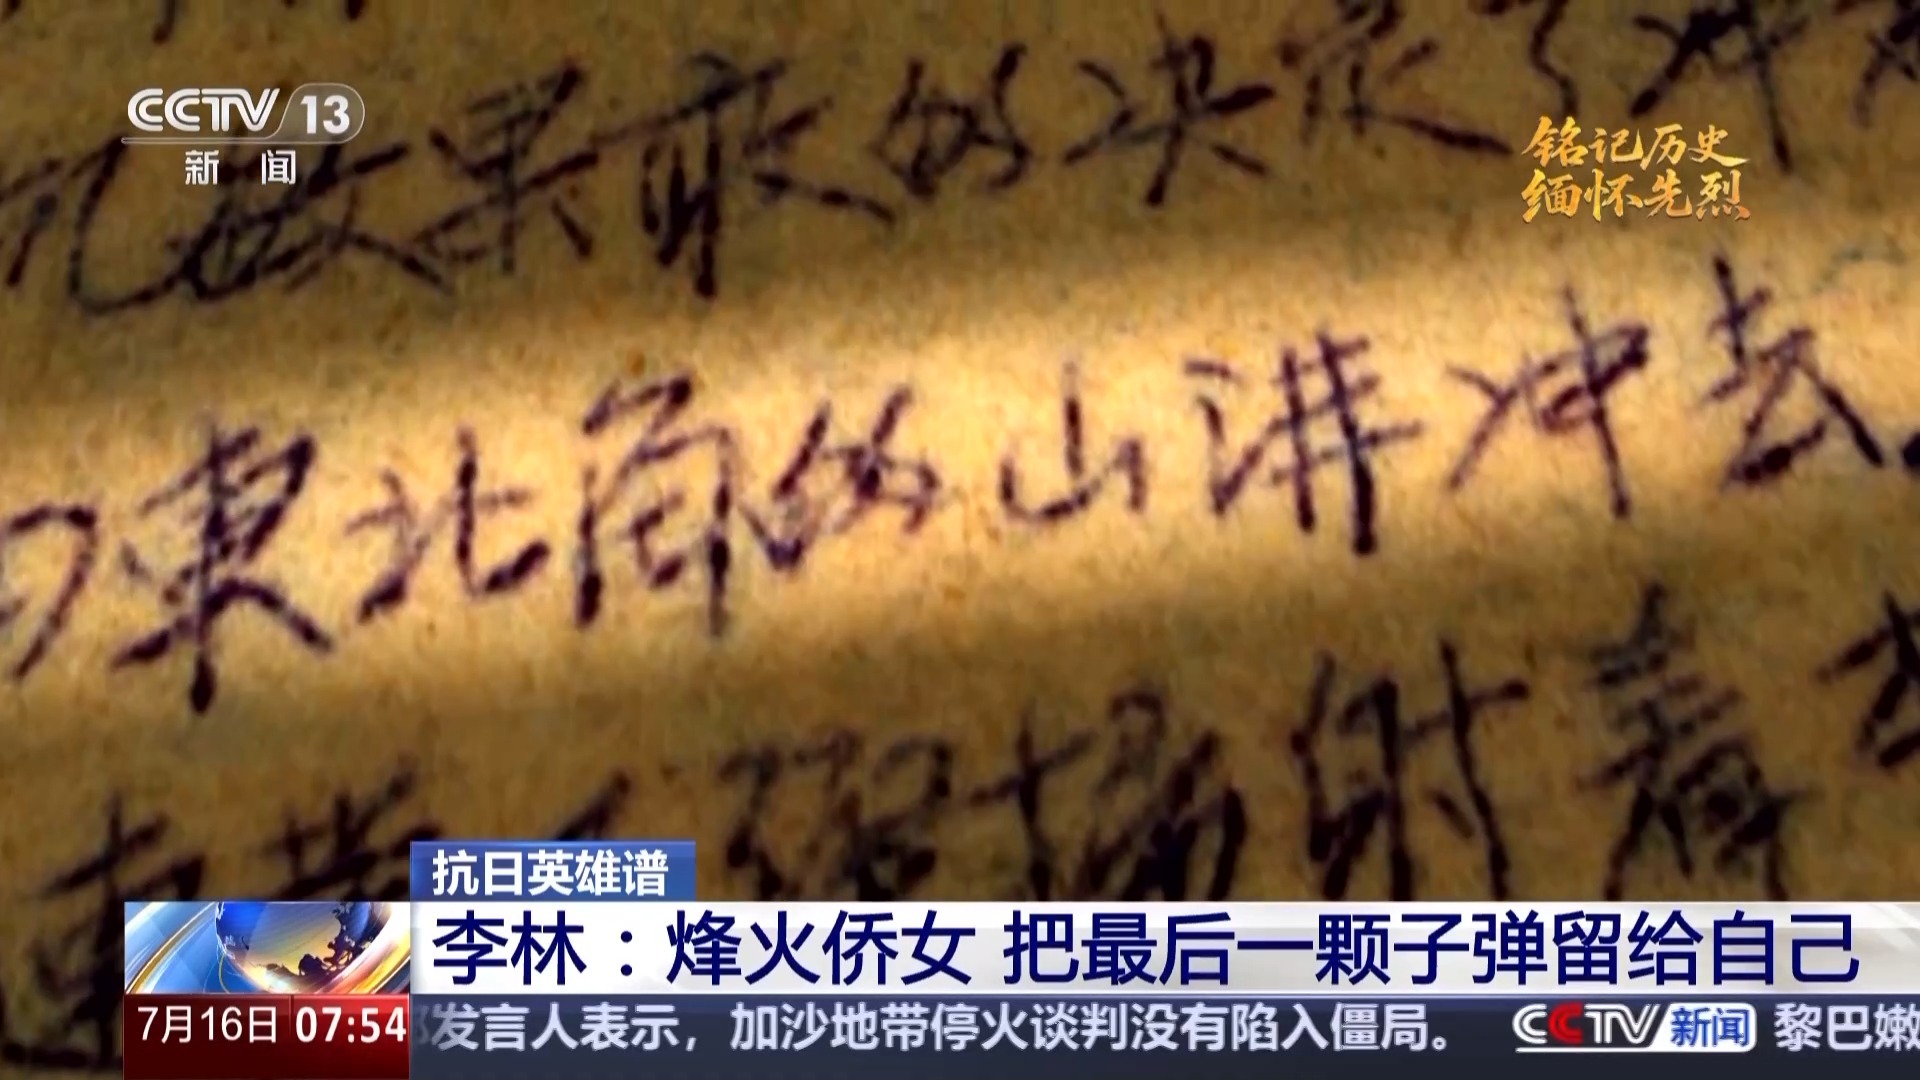 CCTV 13
新闻
铭记历史
缅怀先烈
果敢的决定了冲
向東北角的山沟冲去
现场射着
抗日英雄谱
李林：烽火侨女 把最后一颗子弹留给自己
7月16日 07:54
发言人表示，加沙地带停火谈判没有陷入僵局。 CCTV 新闻 黎巴嫩